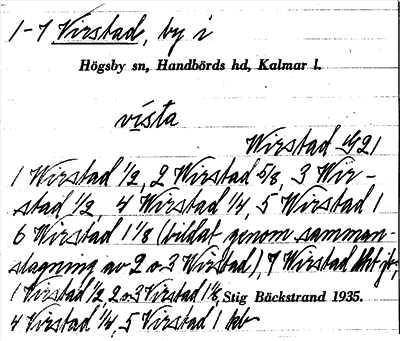 1-7 Virstad, by i
Högsby sn, Handbörds hd, Kalmar l.
vista
Wirstad 21
1 Wirstad 1/2, 2 Wirstad 5/8, 3 Wir-
stad 1/2, 4 Wirstad 1/4, 5 Wirstad 1
6 Wirstad 1 1/8 (bildat genom samman-
slagning av 2 o 3 Wirstad), 7 Wirstad
1 Virstad 1/2, 2 o 3 Virstad 1 1/8, Stig Bäckstrand 1935.
4 Virstad 1/4, 5 Virstad 1